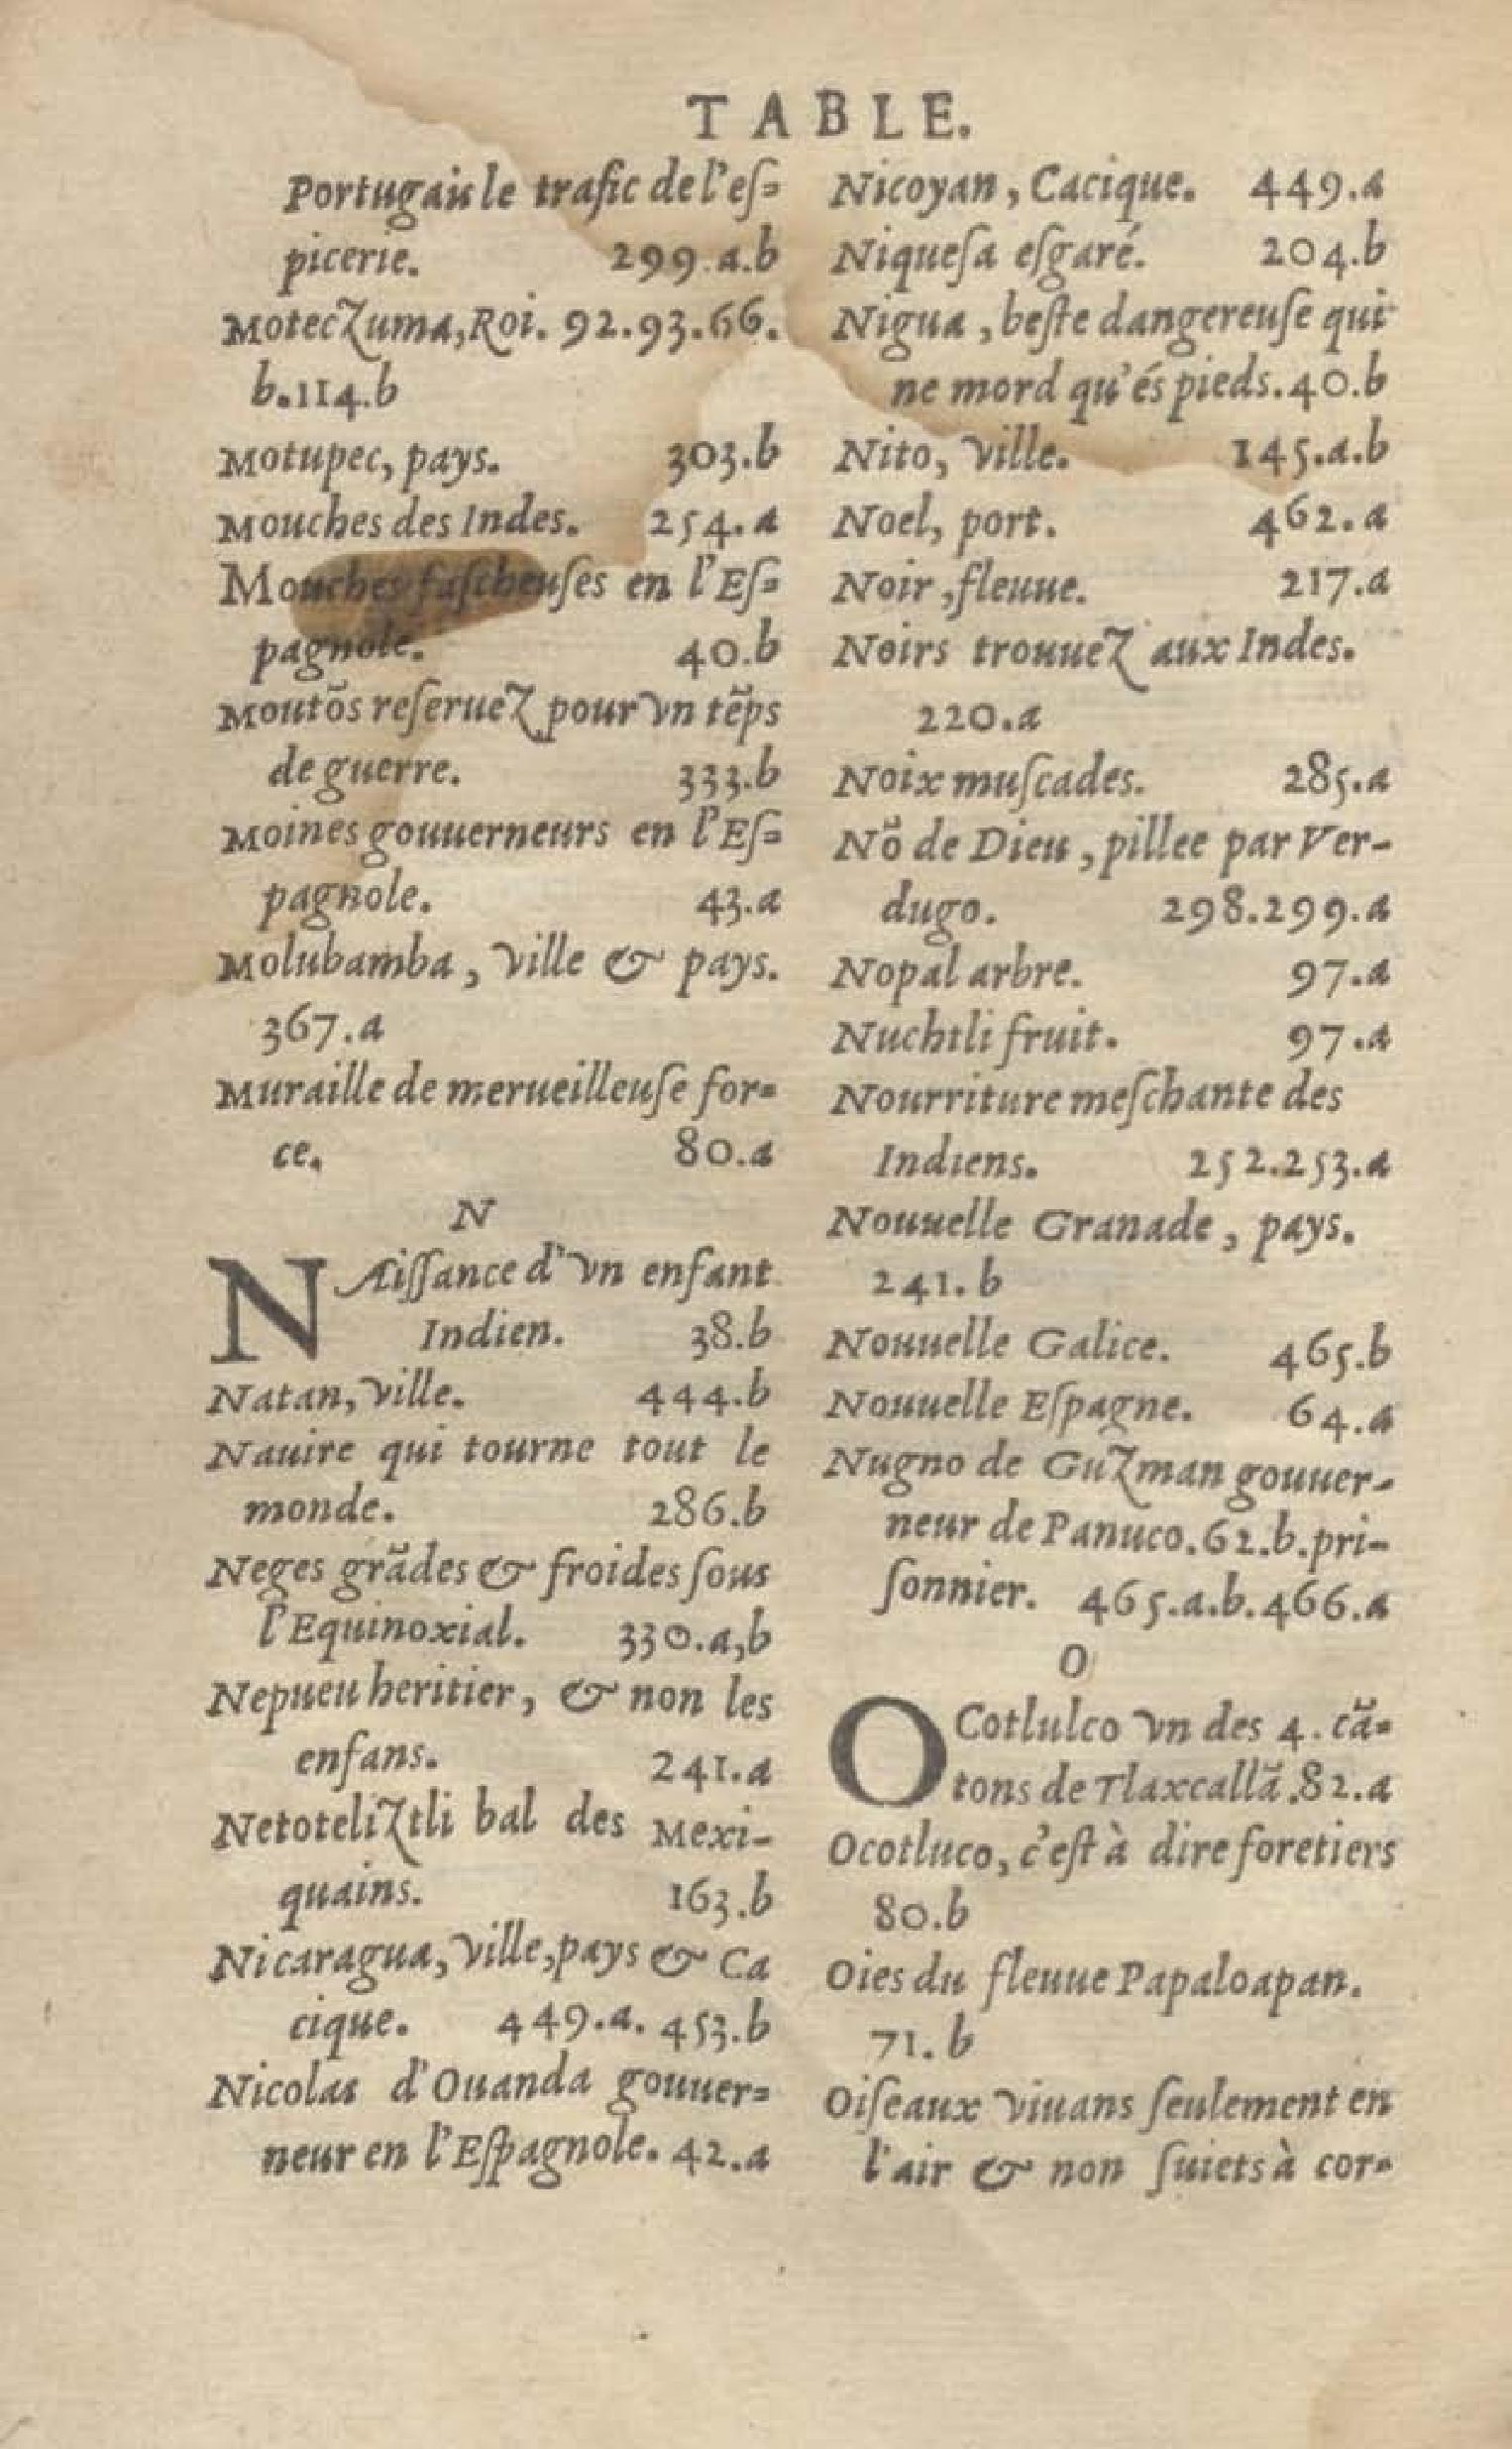 TABLE.
Portugais le trafic de l'eſ=
picerie. 299.a.b
Moteczuma, Roi. 92.93.66.
b.114.b
Motupec, pays. 303.b
Mouches des Indes. 254.a
Mouches faſcheuſes en l'Eſ=
pagnole. 40.b
Moutõs reſeruez pour vn tẽps
de guerre. 333.b
Moines gouuerneurs en l'Eſ=
pagnole. 43.a
Molubamba, ville & pays.
367.a
Muraille de merueilleuſe for=
ce. 80.a
N
NAiſſance d'vn enfant
Indien. 38.b
Natan, ville. 444.b
Nauire qui tourne tout le
monde. 286.b
Neges grãdes & froides ſous
l'Equinoxial. 330.a,b
Nepueu heritier, & non les
enfans. 241.a
Netoteliztli bal des Mexi-
quains. 163.b
Nicaragua, ville, pays & Ca
cique. 449.a. 453.b
Nicolas d'Ouanda gouuer=
neur en l'Eſpagnole. 42.a
Nicoyan, Cacique. 449.a
Niqueſa eſgaré. 204.b
Nigua, beſte dangereuſe qui
ne mord qu'és pieds. 40.b
Nito, ville. 145.a.b
Noel, port. 462.a
Noir, fleuue. 217.a
Noirs trouuez aux Indes.
220.a
Noix muſcades. 285.a
Nõ de Dieu, pillee par Ver-
dugo. 298.299.a
Nopal arbre. 97.a
Nuchtli fruit. 97.a
Nourriture meſchante des
Indiens. 252.253.a
Nouuelle Granade, pays.
241.b
Nouuelle Galice. 465.b
Nouuelle Eſpagne. 64.a
Nugno de Guzman gouuer-
neur de Panuco. 62.b. pri-
ſonnier. 465.a.b.466.a
O
OCotlulco vn des 4. cã=
tons de Tlaxcallã. 82.a
Ocotluco, c'eſt à dire foretiers
80.b
Oies du fleuue Papaloapan.
71.b
Oiſeaux viuans ſeulement en
l'air & non ſuiets à cor=